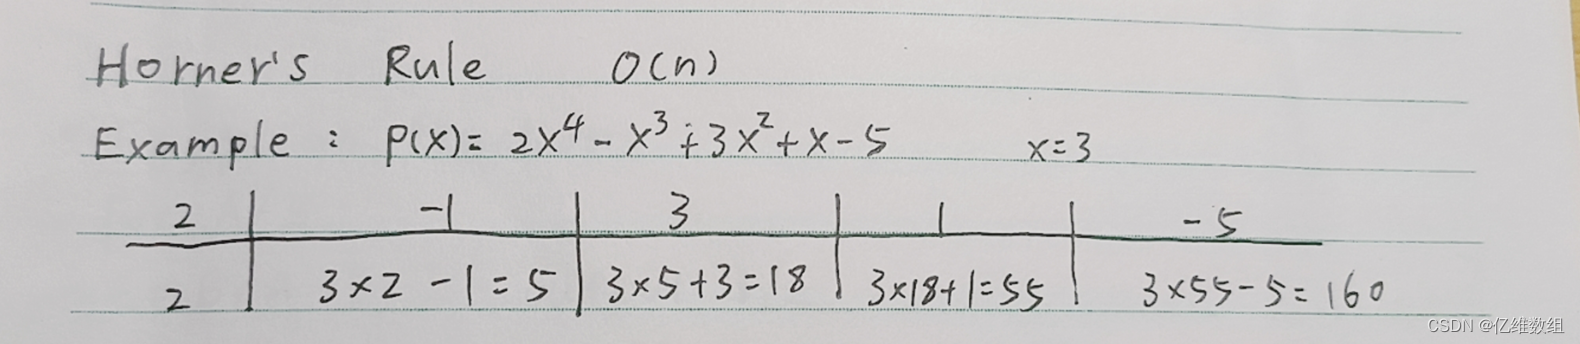 Horner's Rule O(n)
Example : P(x)= 2x⁴ - x³ + 3x² + x - 5 x=3
2 | -1 | 3 | 1 | -5
2 | 3×2 -1 = 5 | 3×5+3=18 | 3×18+1=55 | 3×55-5=160
CSDN @亿维数组